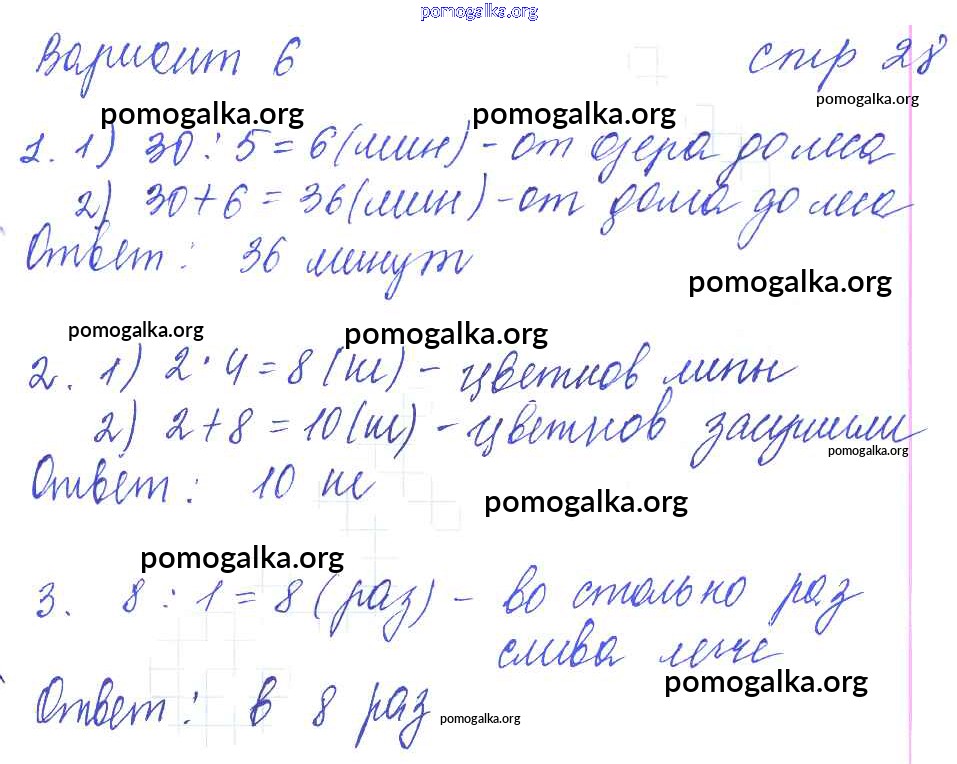 pomogalka.org
Вариант 6 стр 28
pomogalka.org pomogalka.org pomogalka.org
1. 1) 30 : 5 = 6 (мин) - от озера до леса
2) 30 + 6 = 36 (мин) - от дома до леса
Ответ : 36 минут
pomogalka.org
pomogalka.org pomogalka.org
2. 1) 2 · 4 = 8 (кг) - цветков липы
2) 2 + 8 = 10 (кг) - цветков засушили
pomogalka.org
Ответ : 10 кг
pomogalka.org
pomogalka.org
3. 8 : 1 = 8 (раз) - во столько раз
слива легче
pomogalka.org
Ответ : в 8 раз
pomogalka.org